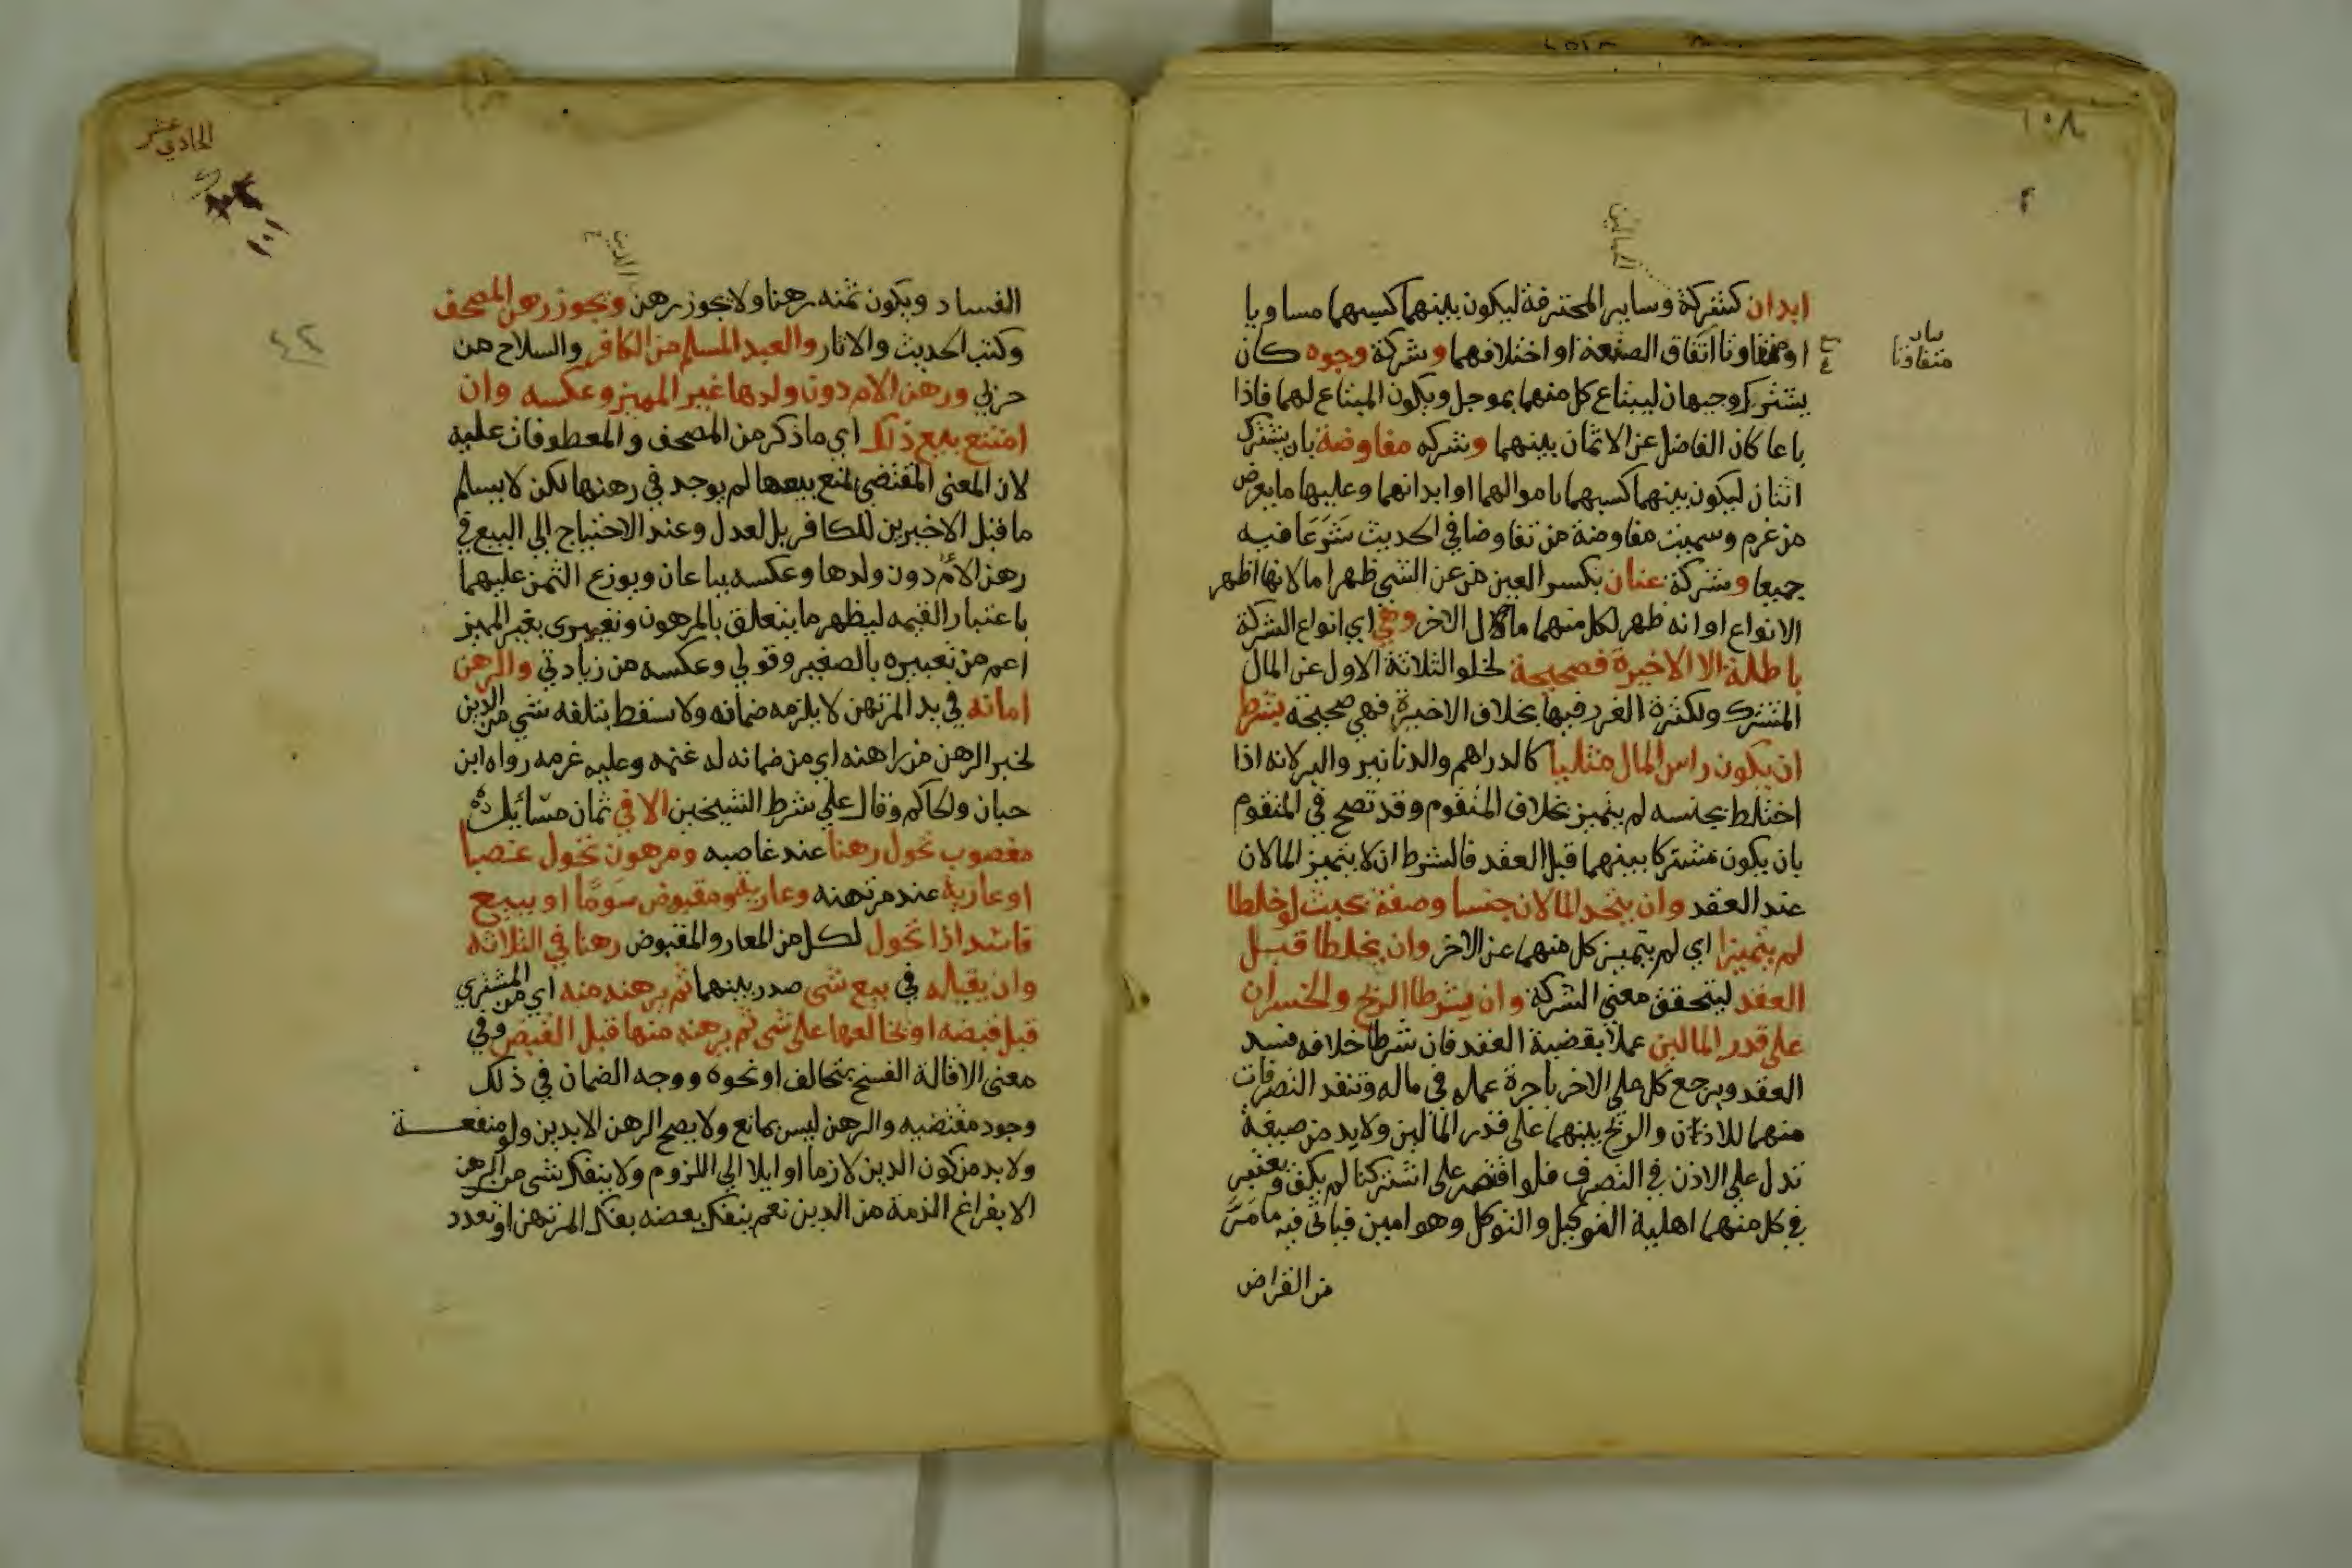 ١٠٨
الحمالين
ابدان كشركة وساير المحترفة ليكون بينهما كسبهما مساويا
او متفاوتا اتفاق الصنعة او اختلافهما وشركة وجوه كان
بيان
متفاوتا
يشترك وجيهان ليبتاع كل منهما بموجل ويكون المبتاع لهما فاذا
باعا كان الفاضل عن الاثمان بينهما وشركه مفاوضة بان يشترك
اثنان ليكون بينهما كسبهما باموالهما او ابدانهما وعليهما ما يعرض
من غرم وسميت مفاوضة من تفاوضا في الحديث شرعا فيه
جميعا وشركة عنان بكسر العين من عن الشي ظهر اما لانها اظهر
الانواع او انه ظهر لكل منهما مال الاخر وهي اي انواع الشركة
باطلة الا الاخيرة فصحيحة لخلو الثلاثة الاول عن المال
المشترك ولكثرة الغرر فيها بخلاف الاخيرة فهي صحيحة بشرط
ان يكون راس المال مثليا كالدراهم والدنانير والبر لانه اذا
اختلط بجنسه لم يتميز بخلاف المتقوم وقد تصح في المتقوم
بان يكون مشتركا بينهما قبل العقد فالشرط ان لا يتميز المالان
عند العقد وان يتحد المالان جنسا وصفة بحيث لو خلطا
لم يتميزا اي لم يتميز كل منهما عن الاخر وان يخلطا قبل
العقد ليتحقق معنى الشركة وان يشرطا الربح والخسران
على قدر المالين عملا بقضية العقد فان شرطا خلافه فسد
العقد ويرجع كل على الاخر باجرة عمله في ماله وتنفذ التصرفات
منهما للاذن والربح بينهما على قدر المالين ولا بد من صيغة
تدل على الاذن في التصرف فلو اقتصر على اشتركنا لم يكف ويعتبر
في كل منهما اهلية التوكيل والتوكل وهو امين فياتي فيه ما مر
من القراض
الحادي عشر
١٠١
٤٢
الدين
الفساد ويكون ثمنه رهنا ولا يجوز رهن ويجوز رهن المصحف
وكتب الحديث والاثار والعبد المسلم من الكافر والسلاح من
حربي ورهن الام دون ولدها غير المميز وعكسه وان
امتنع بيع ذلك اي ما ذكر من المصحف والمعطوفات عليه
لان المعنى المقتضي لمنع بيعها لم يوجد في رهنها لكن لا يسلم
ما قبل الاخيرين للكافر بل لعدل وعند الاحتياج الى البيع في
رهن الام دون ولدها وعكسه يباعان ويوزع الثمن عليهما
باعتبار القيمه ليظهر ما يتعلق بالمرهون وتعبيري بغير المميز
اعم من تعبيره بالصغير وقولي وعكسه من زيادتي والرهن
امانه في يد المرتهن لا يلزمه ضمانه ولا يسقط بتلفه شي من الدين
لخبر الرهن من راهنه اي من ضمانه له غنمه وعليه غرمه رواه ابن
حبان والحاكم وقال على شرط الشيخين الا في ثمان مسائل
مغصوب تحول رهنا عند غاصبه ومرهون تحول غصبا
او عارية عند مرتهنه وعارية ومقبوض سوما او ببيع
فاسد اذا تحول لكل من المعار والمقبوض رهنا في الثلاثه
وان يقيله في بيع شي صدر بينهما ثم يرهنه منه اي من المشتري
قبل قبضه او يخالعها على شي ثم يرهنه منها قبل القبض وفي
معنى الاقالة الفسخ بتحالف او نحوه ووجه الضمان في ذلك
وجود مقتضيه والرهن ليس بمانع ولا يصح الرهن الا بدين ولو منفعة
ولا بد من كون الدين لازما او ايلا الى اللزوم ولا ينفك شي من الرهن
الا بفراغ الذمة من الدين نعم ينفك بعضه بفك المرتهن او تعدد